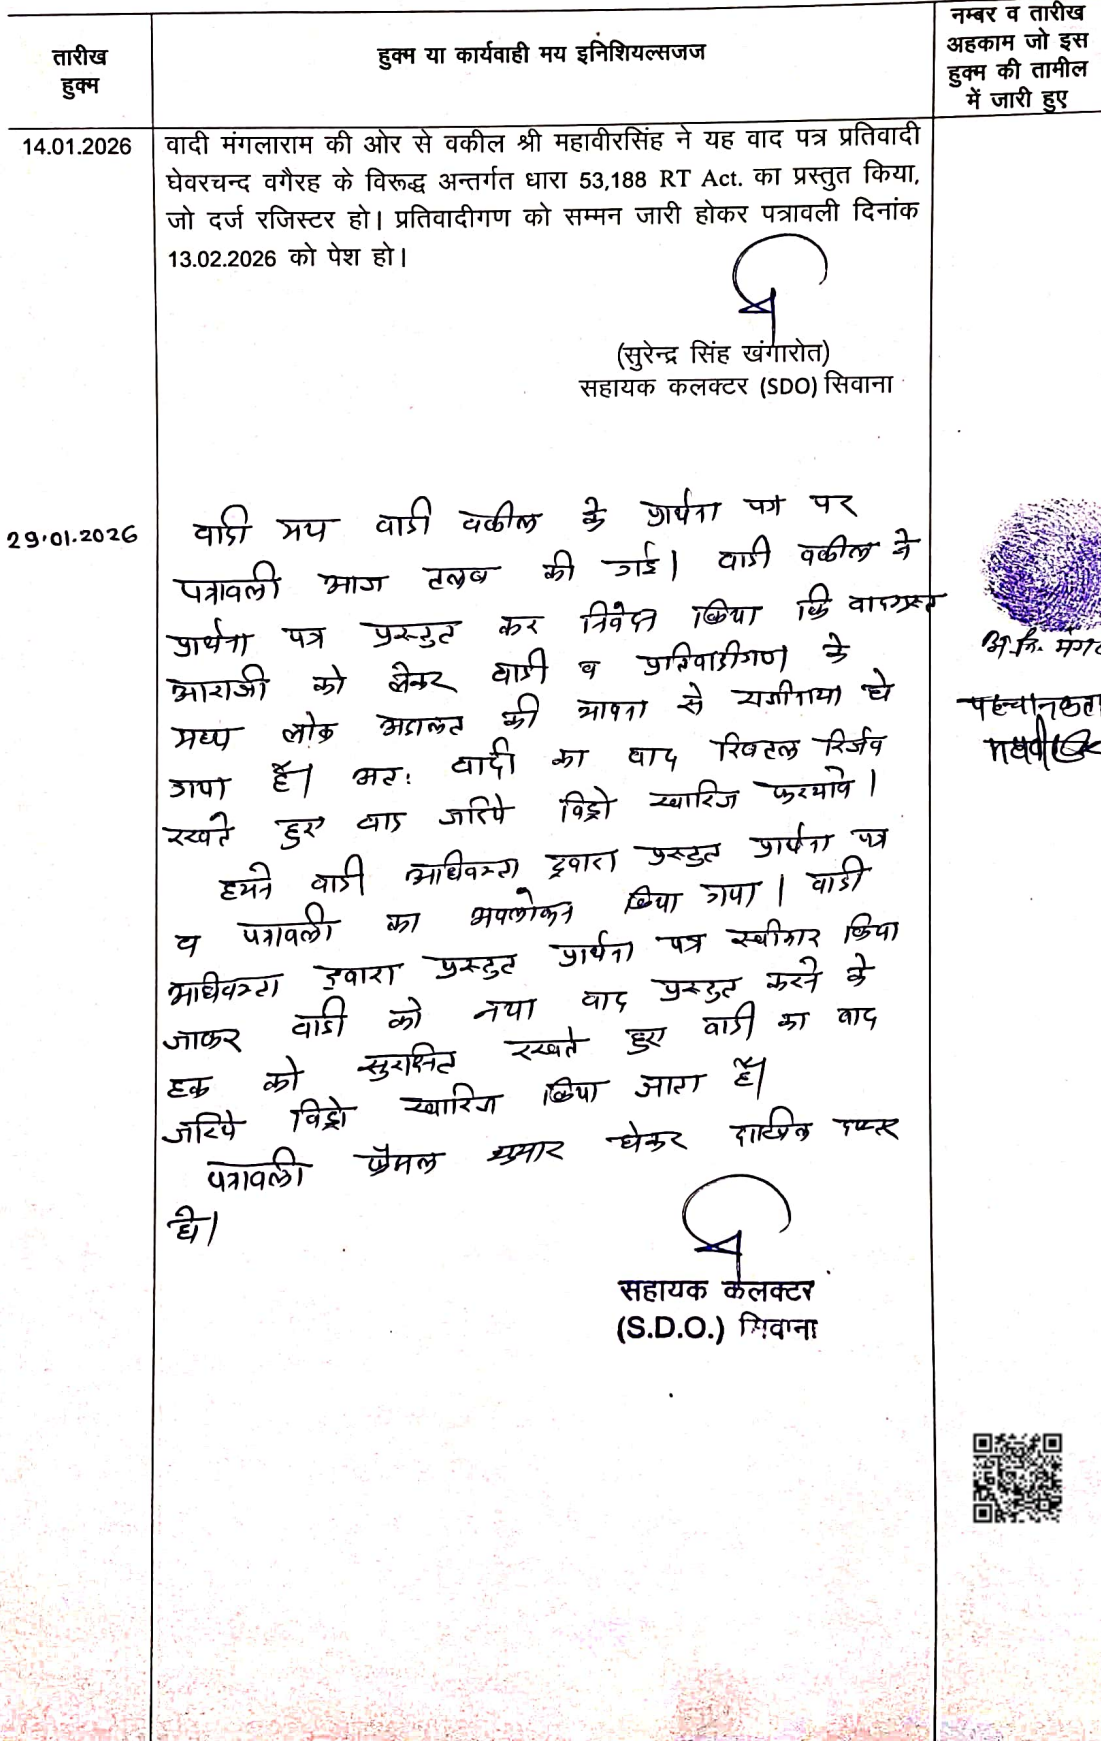 तारीख
हुक्म
हुक्म या कार्यवाही मय इनिशियल्सजज
नम्बर व तारीख
अहकाम जो इस
हुक्म की तामील
में जारी हुए
14.01.2026
वादी मंगलाराम की ओर से वकील श्री महावीरसिंह ने यह वाद पत्र प्रतिवादी
घेवरचन्द वगैरह के विरूद्ध अन्तर्गत धारा 53,188 RT Act. का प्रस्तुत किया,
जो दर्ज रजिस्टर हो। प्रतिवादीगण को सम्मन जारी होकर पत्रावली दिनांक
13.02.2026 को पेश हो।
(सुरेन्द्र सिंह खंगारोत)
सहायक कलक्टर (SDO) सिवाना
29.01.2026
वादी मय वादी वकील के प्रार्थना पत्र पर
पत्रावली आज तलब की गई। वादी वकील ने
प्रार्थना पत्र प्रस्तुत कर निवेदन किया कि वादग्रस्त
आराजी को लेकर वादी व प्रतिवादीगण के
मध्य लोक अदालत की भावना से राजीनामा हो
गया है। अतः वादी का वाद रिजर्व
रखते हुए वाद जरिये विड्रो खारिज फरमावे।
हमने वादी अधिवक्ता द्वारा प्रस्तुत प्रार्थना पत्र
व पत्रावली का अवलोकन किया गया। वादी
अधिवक्ता द्वारा प्रस्तुत प्रार्थना पत्र स्वीकार किया
जाकर वादी को नया वाद प्रस्तुत करने के
हक को सुरक्षित रखते हुए वादी का वाद
जरिये विड्रो खारिज किया जाता है।
पत्रावली फैसल शुमार होकर दाखिल दफ्तर
हो।
सहायक कलक्टर
(S.D.O.) सिवाना
अ.नि. मंग
पहचानकर्ता